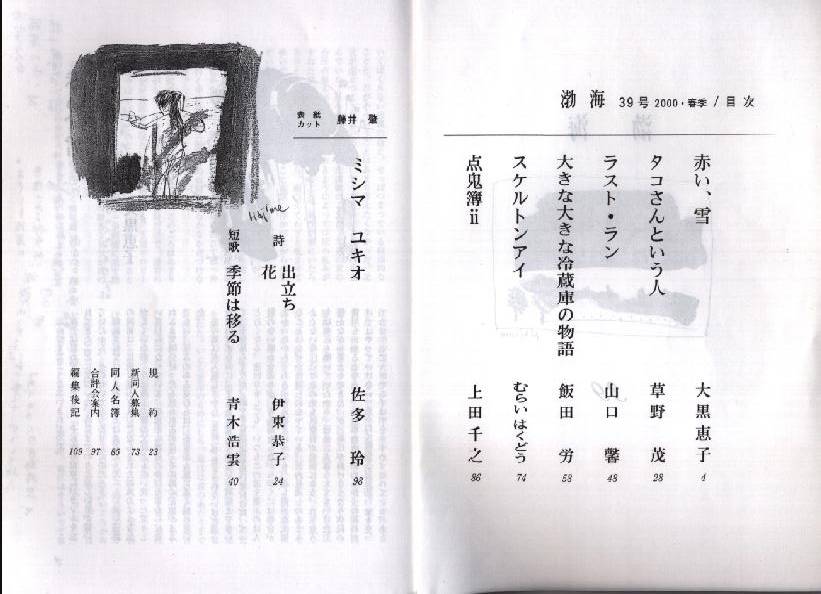 渤海 39号 2000・春季 / 目次
赤い、雪 大黒恵子 4
タコさんという人 草野茂 28
ラスト・ラン 山口馨 48
大きな大きな冷蔵庫の物語 飯田労 58
スケルトンアイ むらいはくどう 74
点鬼簿ⅱ 上田千之 86
表紙
カット 藤井肇
ミシマ ユキオ 佐多玲 98
詩 出立ち
花 伊東恭子 24
短歌 季節は移る 青木浩雲 40
規約 23
新同人募集 73
同人名簿 85
合評会案内 97
編集後記 109
Hajime